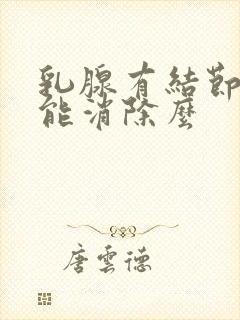 乳腺有結節
能消除麼
唐雲德